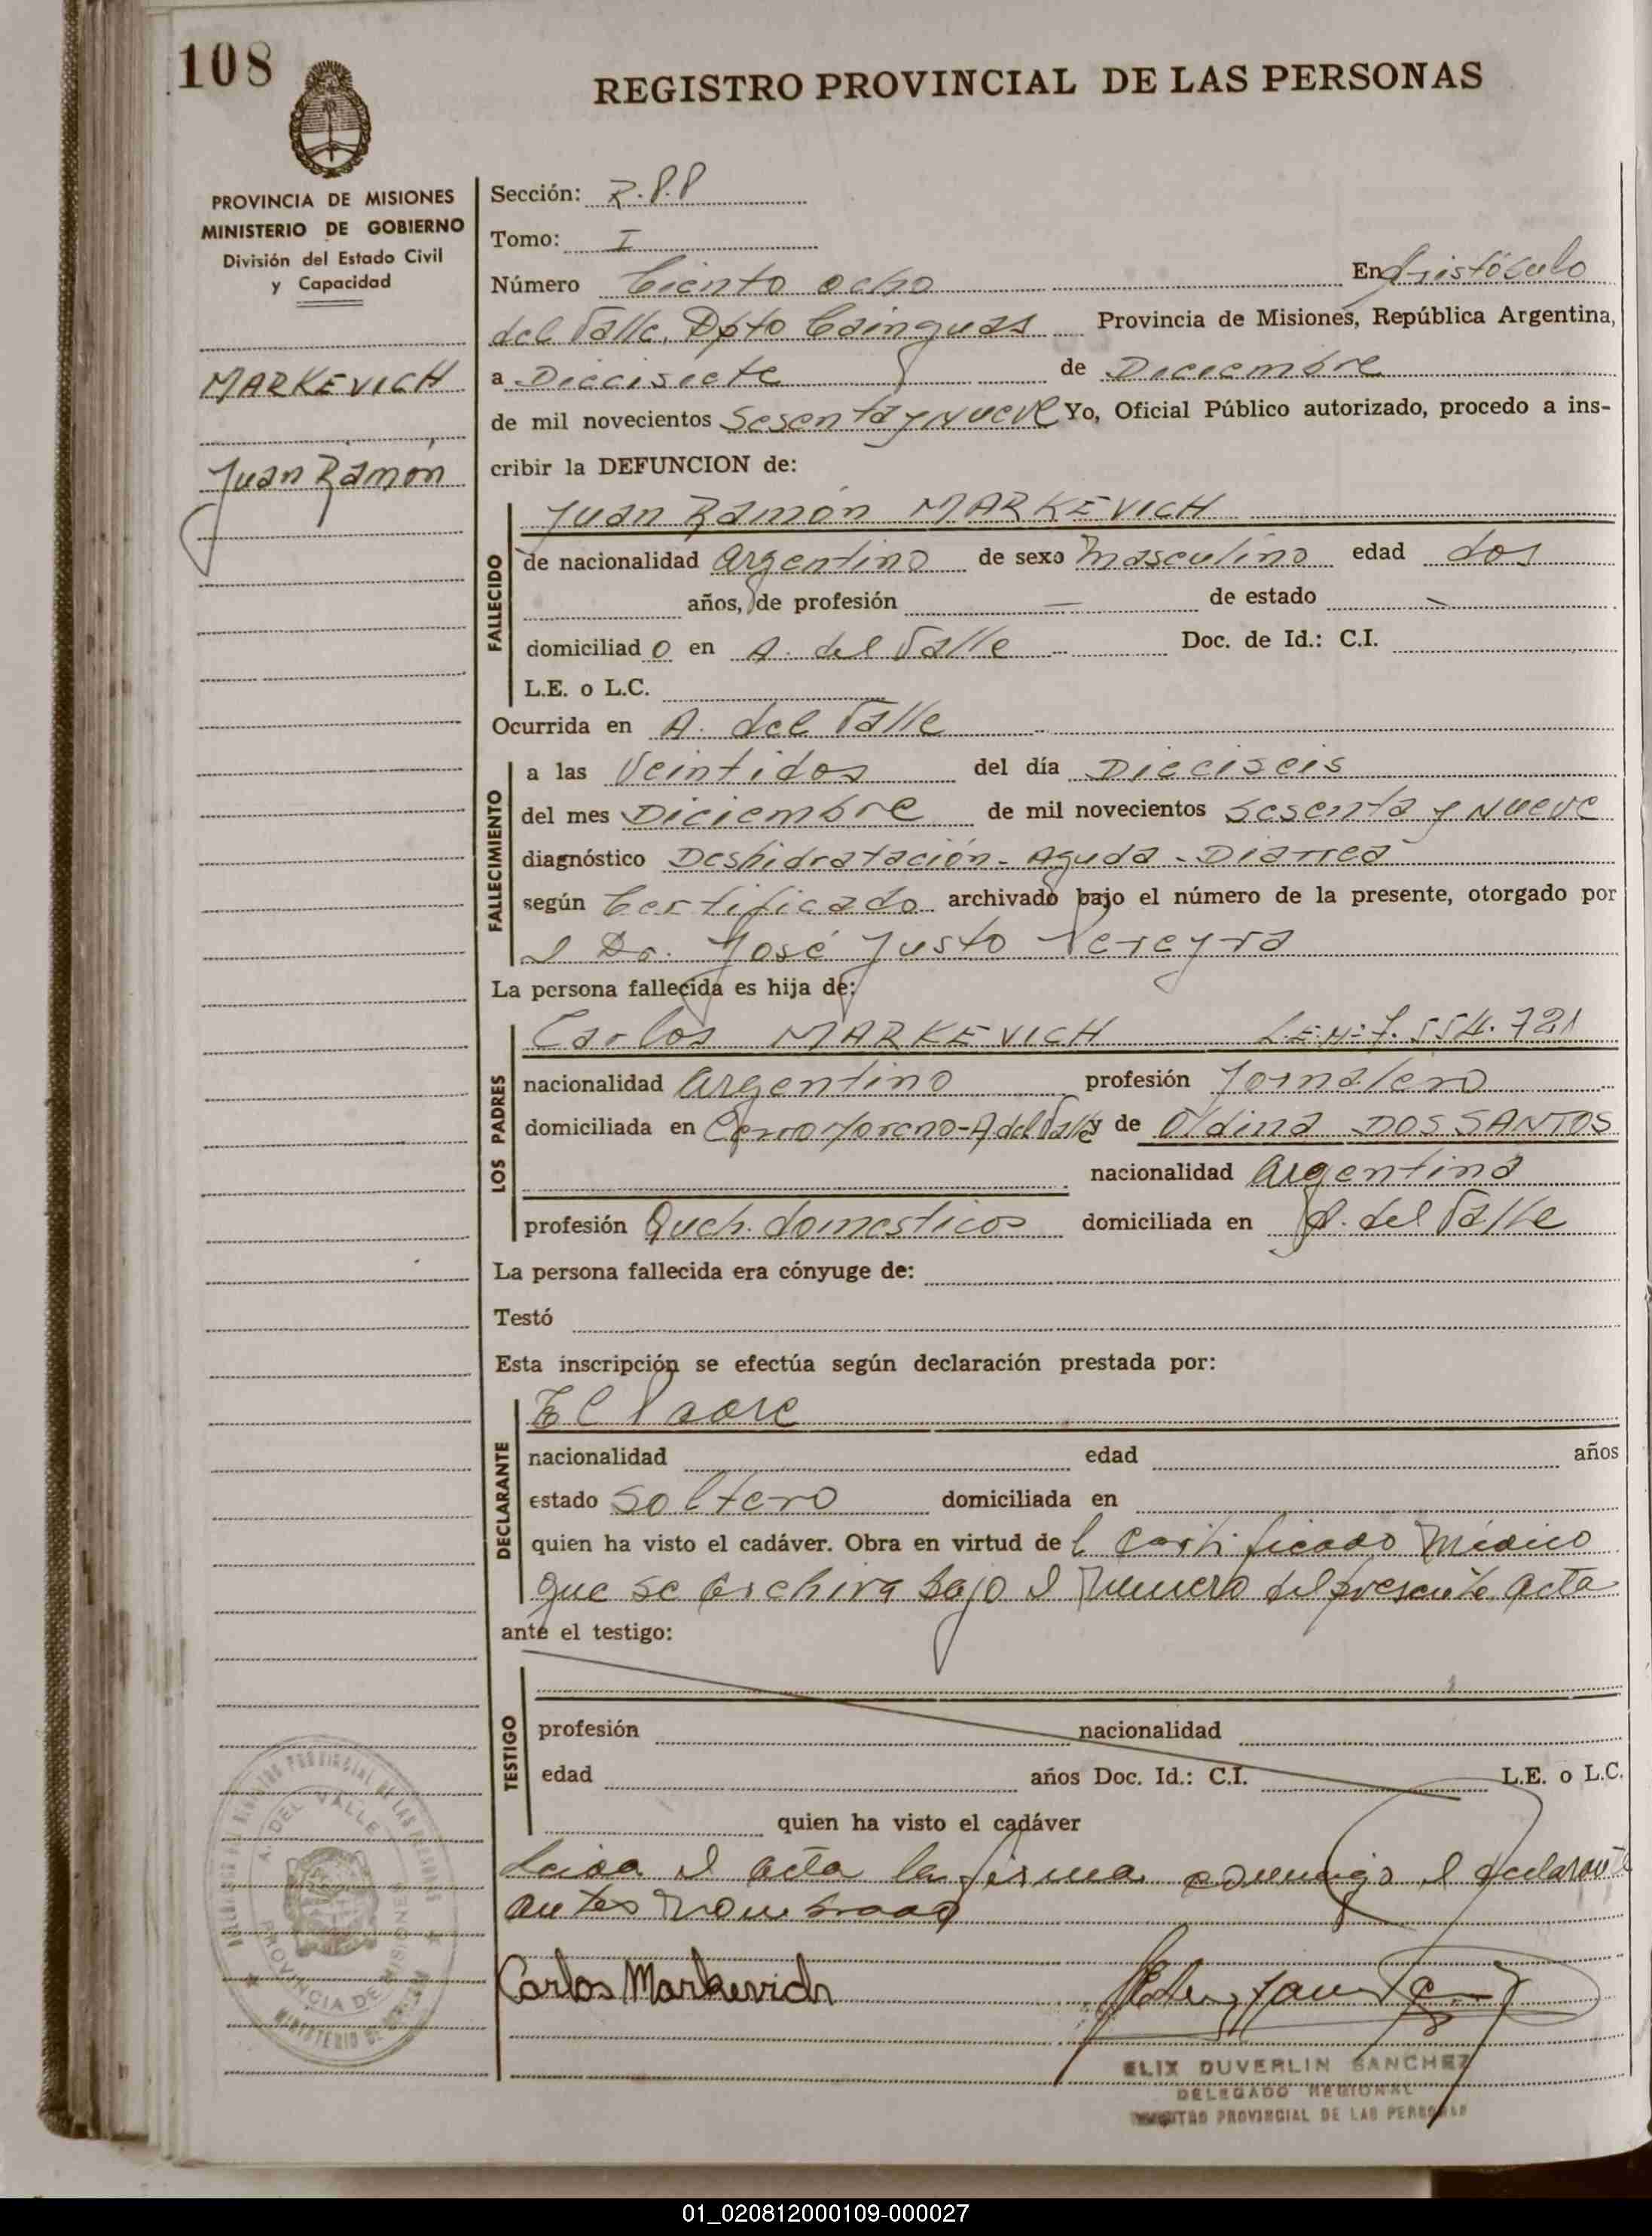 108
REGISTRO PROVINCIAL DE LAS PERSONAS
PROVINCIA DE MISIONES
MINISTERIO DE GOBIERNO
División del Estado Civil
y Capacidad
MARKEVICH
Juan Ramón
Sección: R.P.P
Tomo: I
Número Ciento ocho En Aristóbulo
del Valle, Dpto Cainguas Provincia de Misiones, República Argentina,
a Diecisiete de Diciembre
de mil novecientos Sesenta y Nueve Yo, Oficial Público autorizado, procedo a ins-
cribir la DEFUNCION de:
FALLECIDO
Juan Ramón MARKEVICH
de nacionalidad argentino de sexo masculino edad dos
años, de profesión — de estado —
domiciliad o en A. del Valle Doc. de Id.: C.I.
L.E. o L.C.
Ocurrida en A. del Valle
FALLECIMIENTO
a las Veintidos del día Dieciseis
del mes Diciembre de mil novecientos Sesenta y Nueve
diagnóstico Deshidratación - Aguda - Diarrea
según Certificado archivado bajo el número de la presente, otorgado por
el Dr. José Justo Pereyra
La persona fallecida es hija de:
LOS PADRES
Carlos MARKEVICH L.E.Nº 7.554.721
nacionalidad Argentino profesión Jornalero
domiciliada en Cerro Moreno-A del Valle y de Oldina DOS SANTOS
nacionalidad Argentina
profesión Queh. domesticos domiciliada en A. del Valle
La persona fallecida era cónyuge de:
Testó
Esta inscripción se efectúa según declaración prestada por:
DECLARANTE
El Padre
nacionalidad edad años
estado Soltero domiciliada en
quien ha visto el cadáver. Obra en virtud de l Certificado Médico
que se archiva bajo el Numero del presente acta
ante el testigo:
TESTIGO
profesión nacionalidad
edad años Doc. Id.: C.I. L.E. o L.C.
quien ha visto el cadáver
Leida el acta la firma conmigo el declarante
antes nombrado
Carlos Markevich
ELIX DUVERLIN SANCHEZ
DELEGADO REGIONAL
REGISTRO PROVINCIAL DE LAS PERSONAS
A. DEL VALLE
PROVINCIA DE MISIONES
01_020812000109-000027